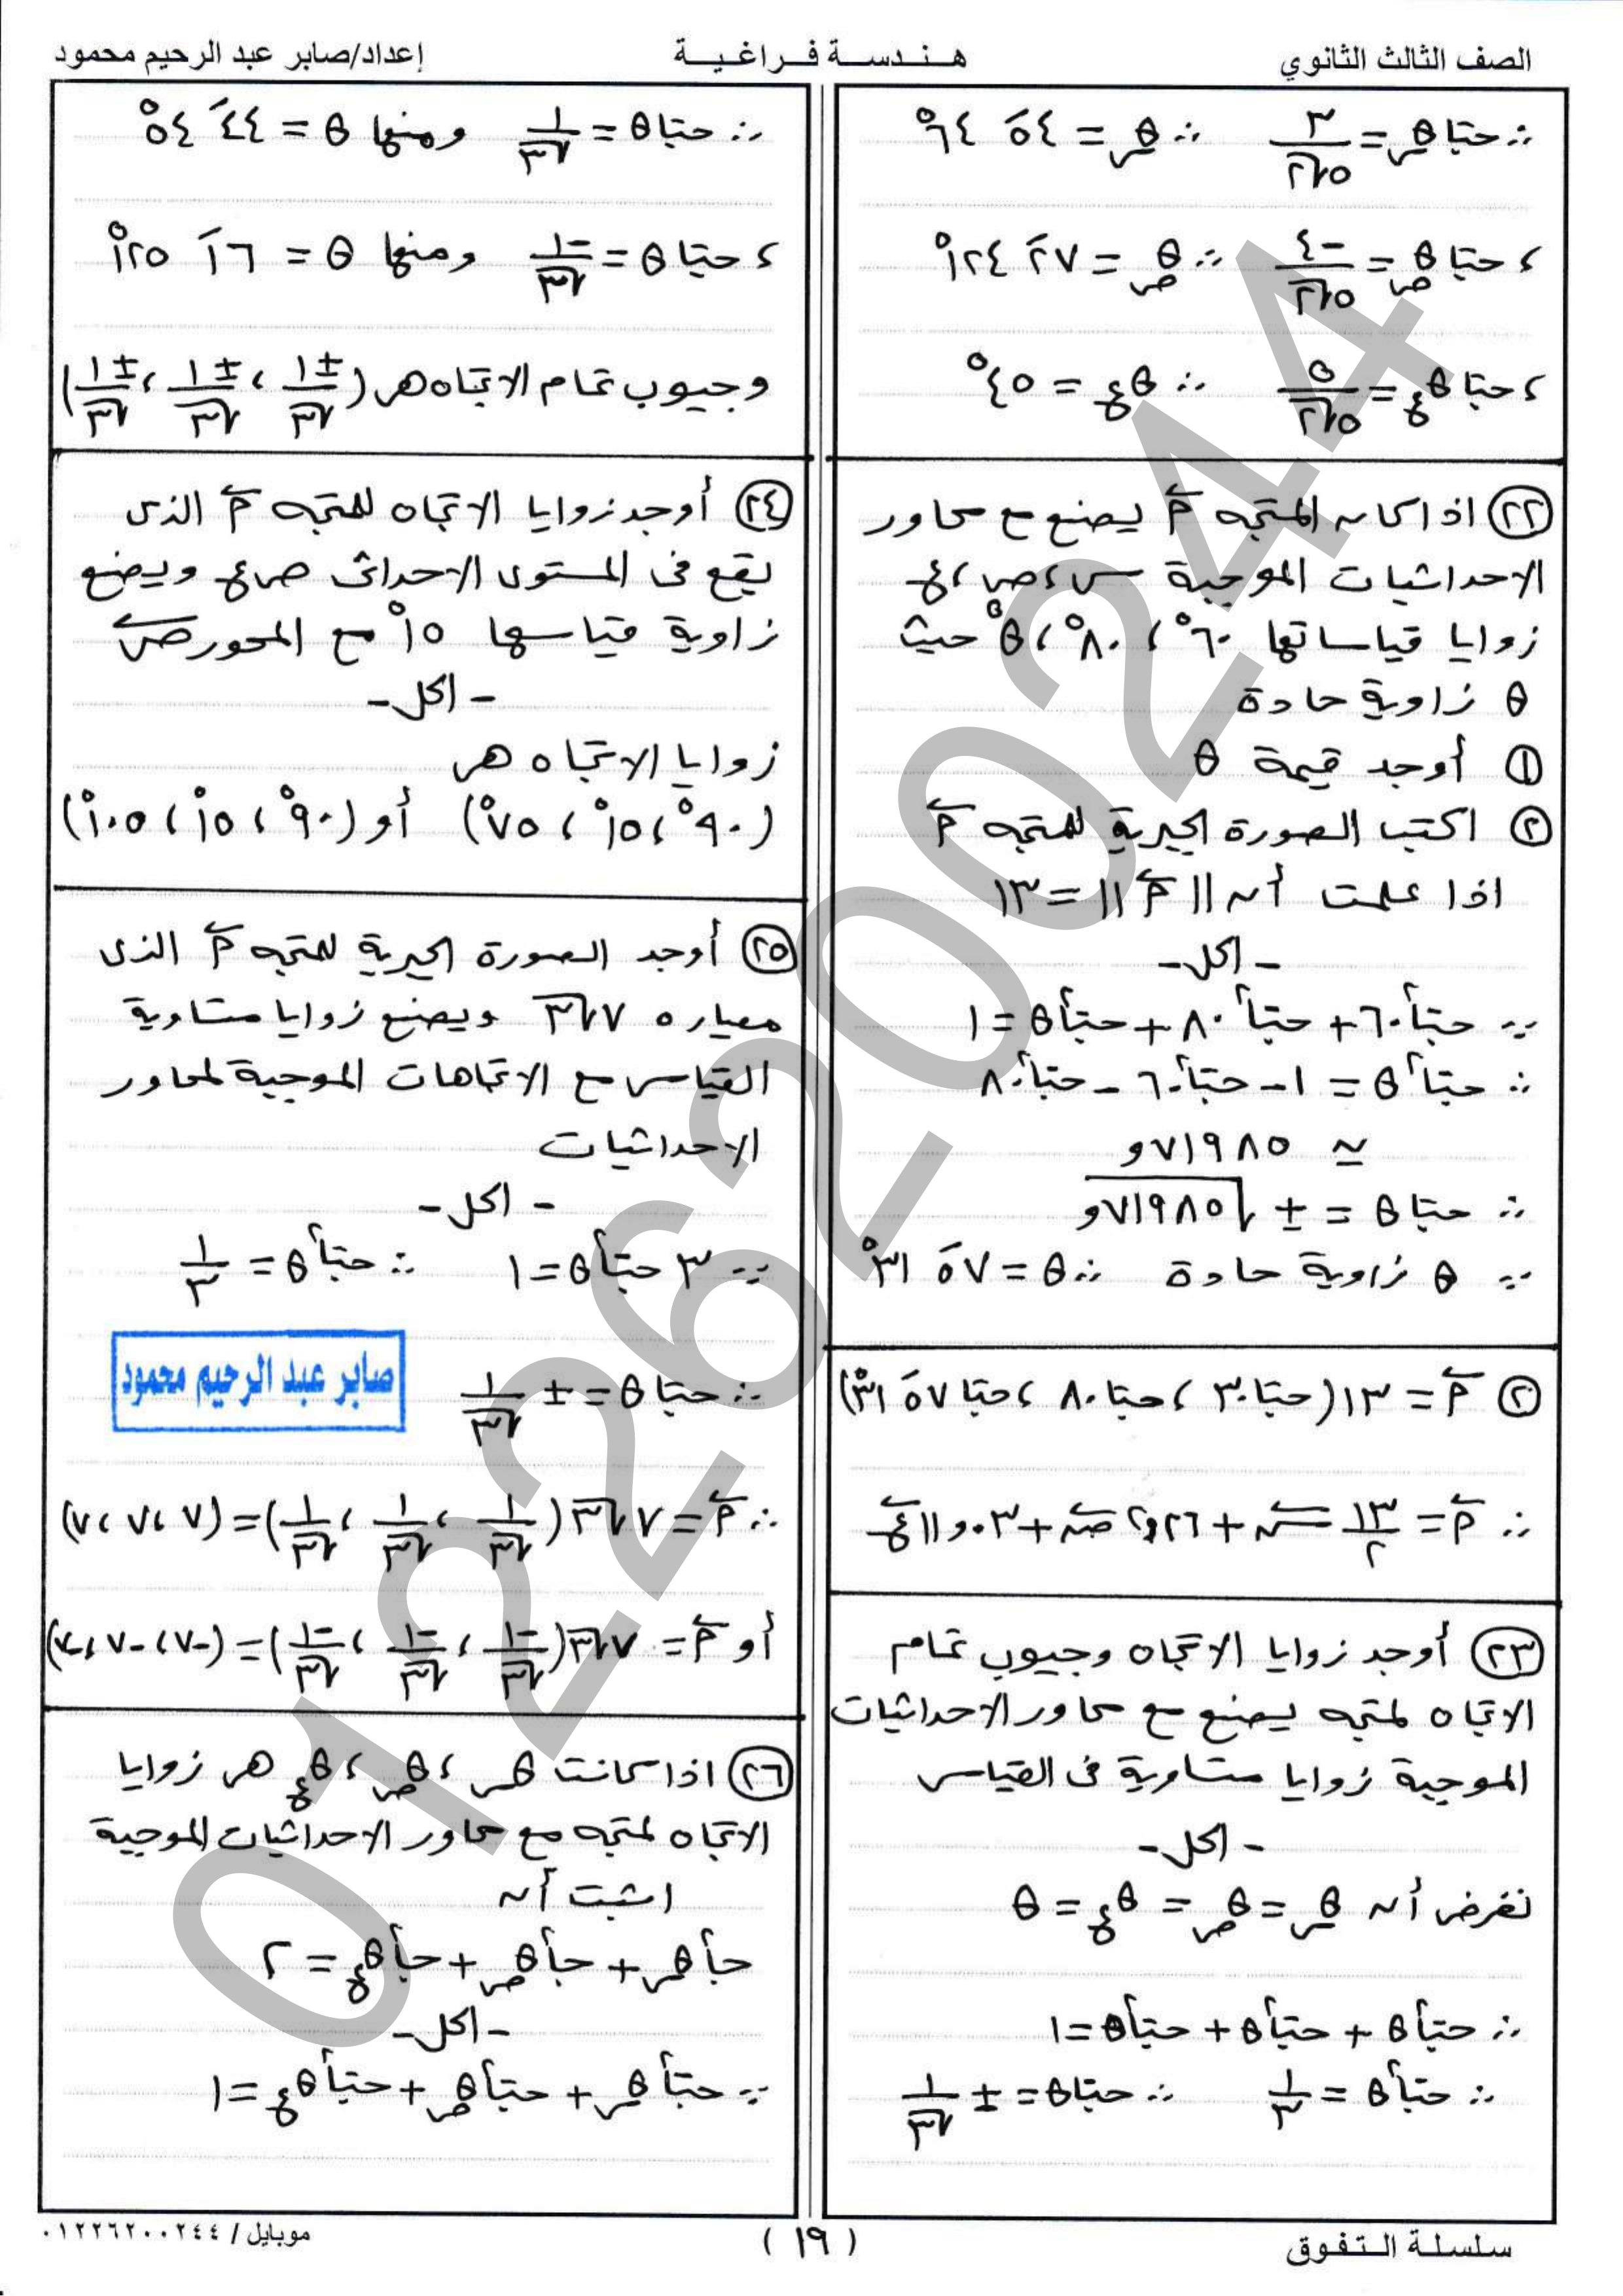 الصف الثالث الثانوي
هندسة فراغية
إعداد/صابر عبد الرحيم محمود
∴ حتا θس = ٣/(٥√٢) ∴ θس = ٥٤َ ٦٤°
، حتا θص = -٤/(٥√٢) ∴ θص = ٢٧َ ١٢٤°
، حتا θع = ٥/(٥√٢) ∴ θع = ٤٥°
(٢٢) اذا كان المتجه م يصنع مع محاور
الاحداثيات الموجبة س ، ص ، ع
زوايا قياساتها ٦٠° ، ٨٠° ، θ° حيث
θ زاوية حادة
(١) أوجد قيمة θ
(٢) اكتب الصورة الجبرية للمتجه م
اذا علمت أن ||م|| = ١٣
- الحل -
∵ حتا٢ ٦٠ + حتا٢ ٨٠ + حتا٢ θ = ١
∴ حتا٢ θ = ١ - حتا٢ ٦٠ - حتا٢ ٨٠
≃ ٧١٩٨٥و
∴ حتا θ = ± √٧١٩٨٥و
∵ θ زاوية حادة ∴ θ = ٥٧َ ٣١°
(٢) م = ١٣ (حتا ٣٠ ، حتا ٨٠ ، حتا ٥٧َ ٣١°)
∴ م = ١٣/٢ س + ٢,٢٦ ص + ١١,٠٣ ع
(٢٣) أوجد زوايا الاتجاه وجيوب تمام
الاتجاه لمتجه يصنع مع محاور الاحداثيات
الموجبة زوايا متساوية فى القياس
- الحل -
نفرض أن θس = θص = θع = θ
∴ حتا٢ θ + حتا٢ θ + حتا٢ θ = ١
∴ حتا٢ θ = ١/٣ ∴ حتا θ = ± ١/√٣
∴ حتا θ = ١/√٣ ومنها θ = ٤٤َ ٥٤°
، حتا θ = -١/√٣ ومنها θ = ١٦َ ١٢٥°
وجيوب تمام الاتجاه هى (±١/√٣ ، ±١/√٣ ، ±١/√٣)
(٢٤) أوجد زوايا الاتجاه للمتجه م الذى
يقع فى المستوى الاحداثى ص ع ويصنع
زاوية قياسها ١٥° مع المحور ص
- الحل -
زوايا الاتجاه هى
(٩٠° ، ١٥° ، ٧٥°) أو (٩٠° ، ١٥° ، ١٠٥°)
(٢٥) أوجد الصورة الجبرية للمتجه م الذى
معياره ٧√٣ ويصنع زوايا متساوية
القياس مع الاتجاهات الموجبة لمحاور
الاحداثيات
- الحل -
∵ ٣ حتا٢ θ = ١ ∴ حتا٢ θ = ١/٣
صابر عبد الرحيم محمود
∴ حتا θ = ± ١/√٣
∴ م = ٧√٣ (١/√٣ ، ١/√٣ ، ١/√٣) = (٧ ، ٧ ، ٧)
أو م = ٧√٣ (-١/√٣ ، -١/√٣ ، -١/√٣) = (-٧ ، -٧ ، -٧)
(٢٦) اذا كانت θس ، θص ، θع هى زوايا
الاتجاه لمتجه مع محاور الاحداثيات الموجبة
اثبت أن
حا٢ θس + حا٢ θص + حا٢ θع = ٢
- الحل -
∵ حتا٢ θس + حتا٢ θص + حتا٢ θع = ١
01226200244
سلسلة التفوق
(١٩)
موبايل / ٠١٢٢٦٢٠٠٢٤٤